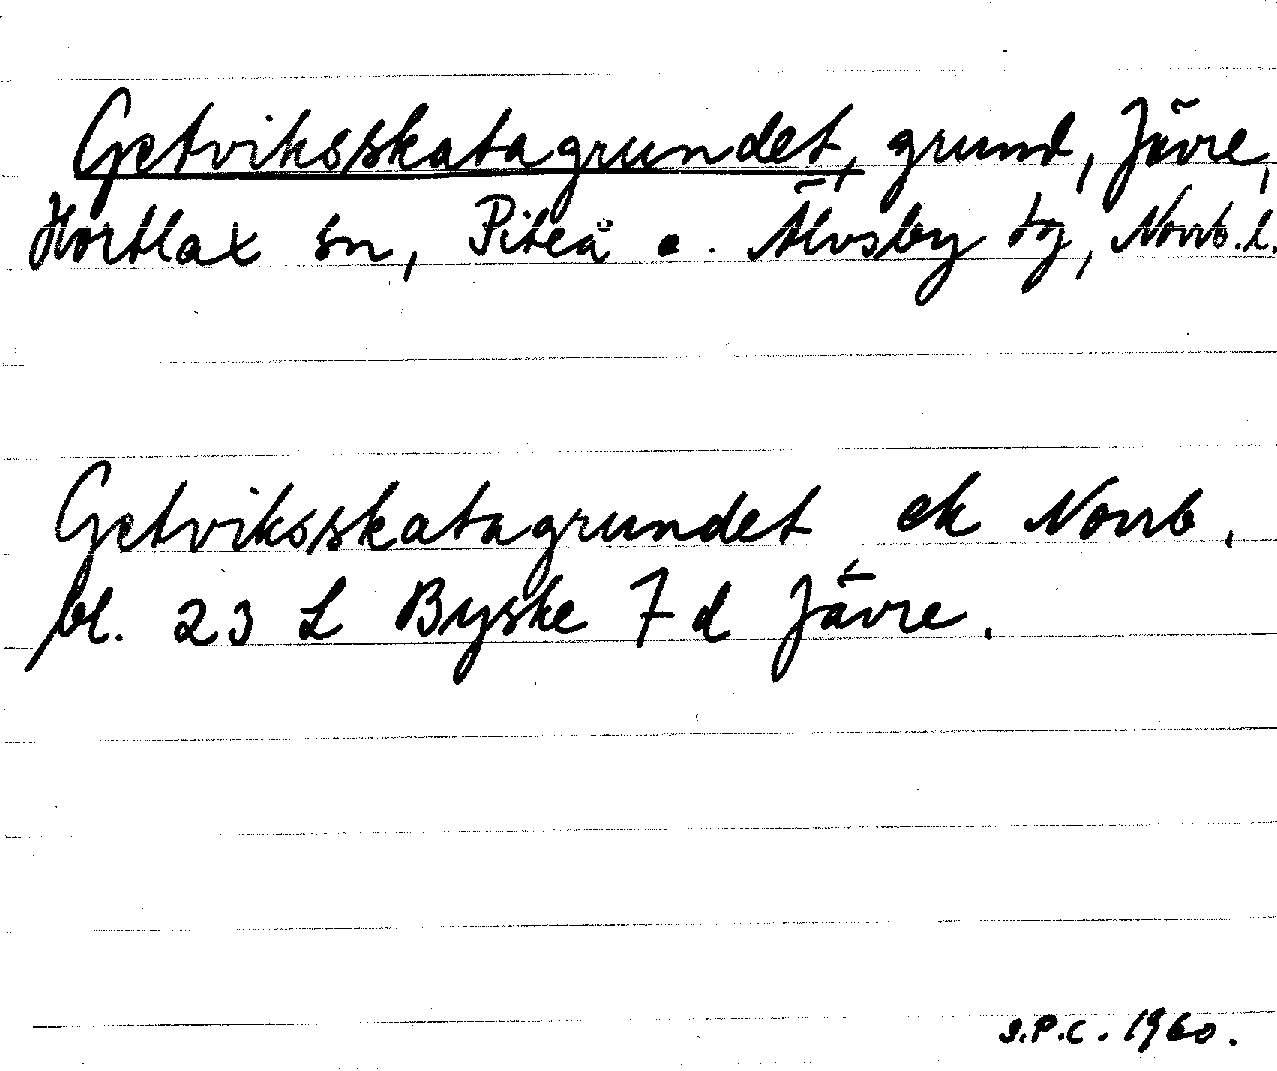 Getviksskatagrundet, grund, Jävre,
Hortlax sn, Piteå o. Älvsby tg, Norrb.l.
Getviksskatagrundet ek Norrb.
bl. 23 L Byske 7 d Jävre.
S.P.C. 1960.